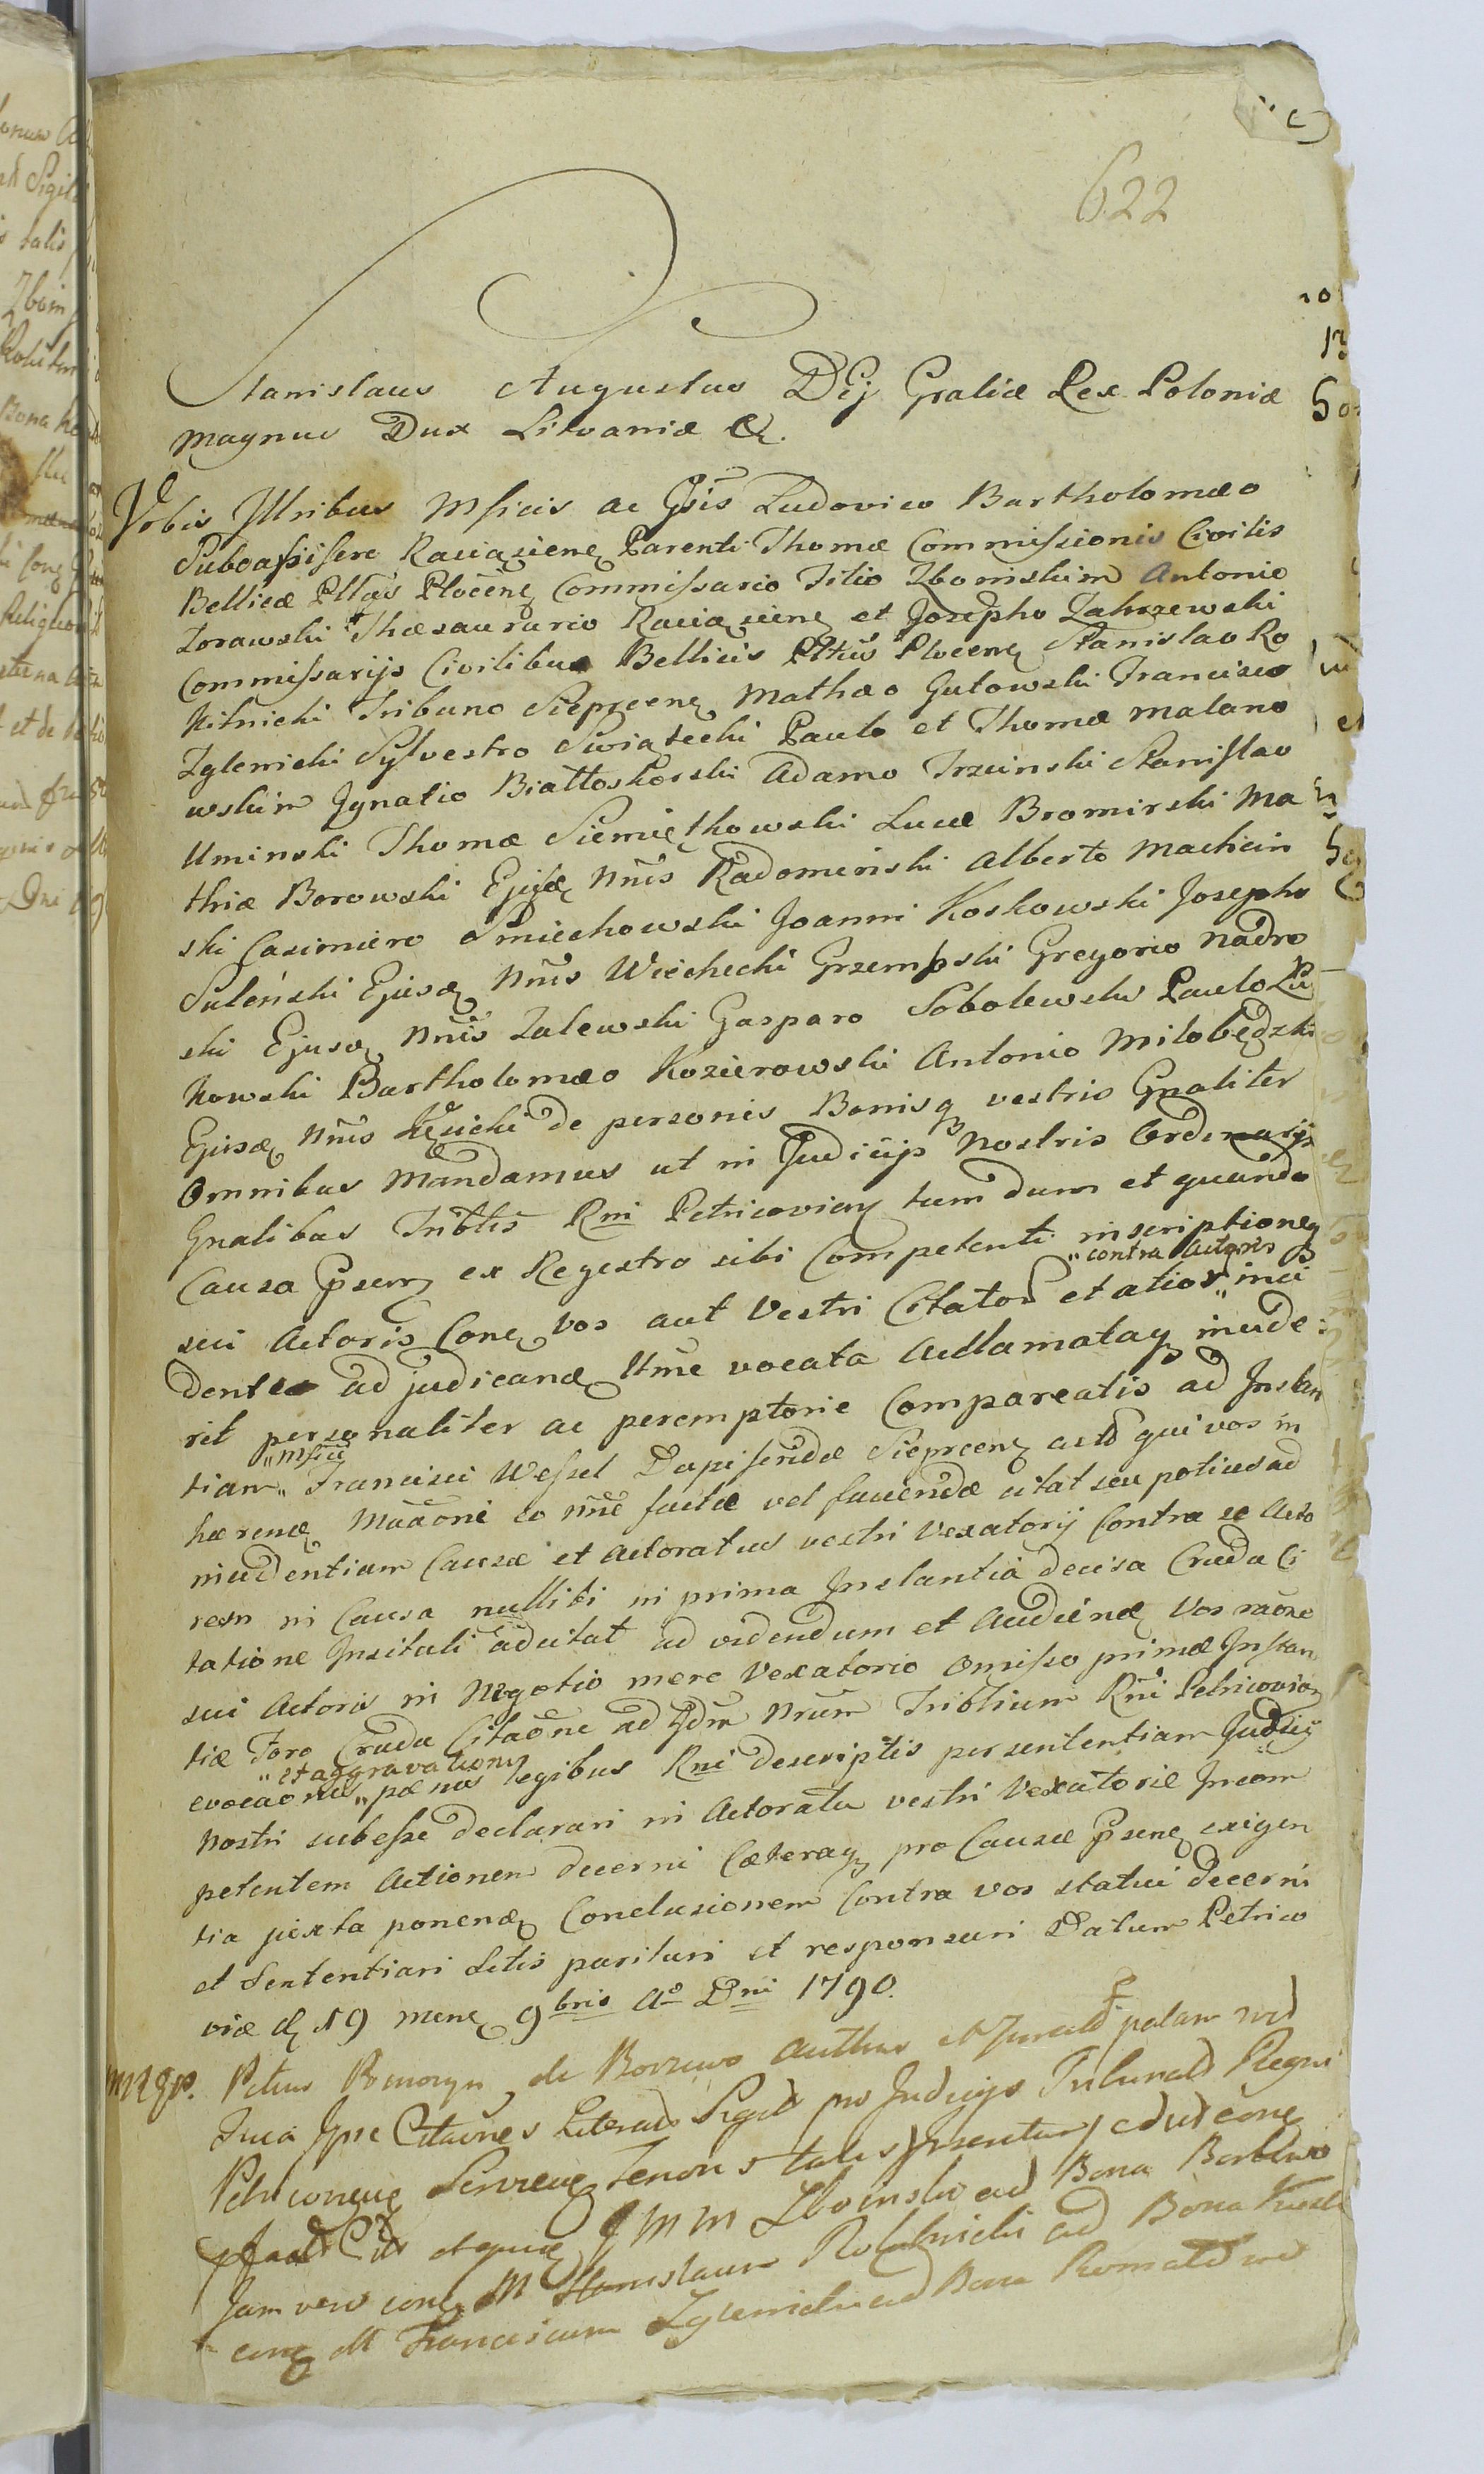 622
Stanislaus Augustus Dei Gratiæ Rex Poloniæ
Magnus Dux Litvaniæ &.
Vobis Illribus Mficis ac Gsis Ludovico Bartholomæo
Subdapifero Raciąziens Parenti Thomæ Commissionis Civilis
Bellicæ Pltus Plocens Commissario Filio Zboinskim Antonio
Zorawski Thæsaurario Raciąziens et Josepho Zahrzewski
Commissarijs Civilibus Bellicis Pltus Plocens Stanislao Ro
kitnicki Tribuno Sieprcens Mathæo Gutowski Francisco
Zglenicki Sylvestro Swiątecki Paulo et Thomæ Malano
wskim Ignatio Białłoskorski Adamo Trzcinski Stanislao
Uminski Thomæ Siemięthowski Lucæ Bromirski Ma
thiæ Borowski Ejusd Nnis Radominski Alberto Machcin
ski Casimiero Smiechowski Joanni Koskowski Josepho
Suleński Ejusd Nnis Wiechecki Grzempski Gregorio Nadro
ski Ejusd Nnis Zalewski Gasparo Sobolewski Paulo Lu
kowski Bartholomæo Kozierowski Antonio Miłobędzki
Ejusd Nnis de personis Bonisq vestris Gnaliter
Omnibus Mandamus ut in Judicijs Nostris Ordinarijs
Gnalibus Tribtis Rni Petricovien tum dum et quando
Causa Psens ex Regestro sibi Competenti inscriptioneq
sui Actoris Cone vos aut Vestri Citatos et alios „contra Actoris„ inci
dentes ad judicand Ume vocata acclamataq incide
rit personaliter ac peremptorie Compareatis ad Instan
tiam „Mfici„ Francisci Wessel Dapiferidæ Sieprcens actd qui vos in
hærend Maaoni eo nne factæ vel faciendæ citat seu potius ad
incidentiam Causæ et Actoratus vestri Vexatorij Contra se Acto
rem in Causa nulliti in prima Instantia decisa Cruda Ci
tatione Insituti adcitat ad videndum et Audiend Vos raone
sui Actoris in Negotio mere Vexatorio omisso primæ Instan
tiæ Foro Cruda Citaone ad Jdm Nrum Tribtium Rni Petricovien
evocaonis „et aggravations„ pænas legibus Rni descriptis per sententiam Judicij
Nostri subesse declarari in Actoratu vestri Vexatoriæ Incom
petentem Actionem decerni Cæteraq pro Causæ Psens exigen
tia juxta ponend Conclusionem Contra vos statui decerni
et Sententiari Setis parituri et responsuri Datum Petrico
viæ d 19 mens 9bris Ao Dni 1790.
Petrus de Borzewo Authus et Juratd palam
Ipse Citaones Literad Sigil pro Judicijs Tribunald Regni
Zboinski ad Bona
Jam vero cone M Stanislaum Rokitnicki ad Bona
cone M Franciscum Zglenicki ad Bona